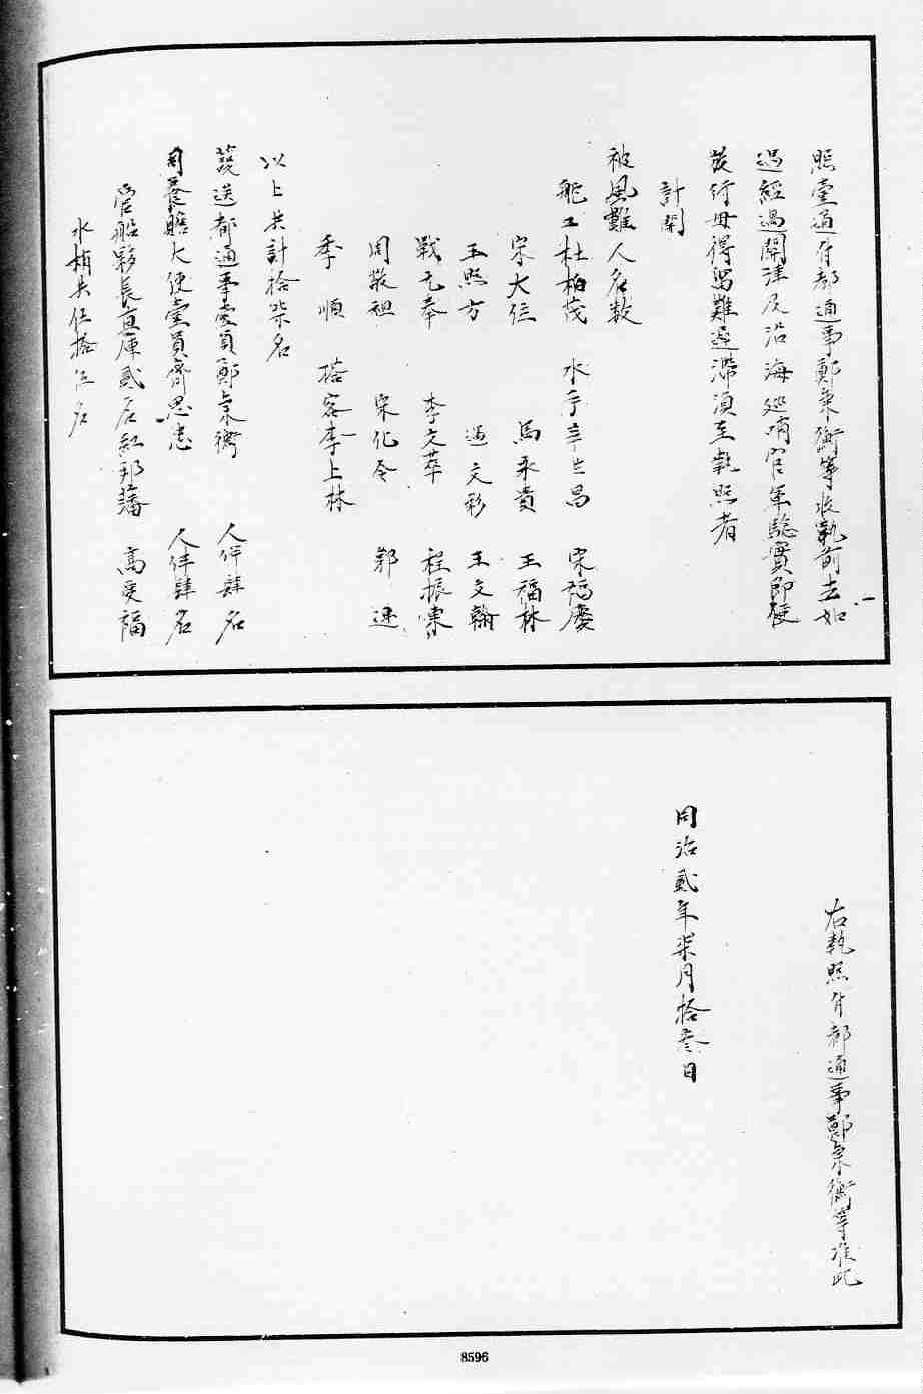 照壹通付都通事鄭秉衡等收執前去如
遇經過關津及沿海巡哨官軍驗實即便
放行毋得留難遲滯須至執照者
計開
被風難人名數
舵工杜柏茂 水手辛出昌 宋福慶
宋大 馬永貴 王福林
王熙方 遇文彩 王文翰
戰元奉 李文萃 程振東
周敬祖 宋化令 郭連
季順 搭客李上林
以上共計拾柒名
護送都通事壹員鄭秉衡 人伴肆名
司養贍大使壹員齊思忠 人伴肆名
管船夥長直庫貳名紅邦藩 高受福
水梢共伍拾名
右執照付都通事鄭秉衡等准此
同治貳年柒月拾叁日
8596